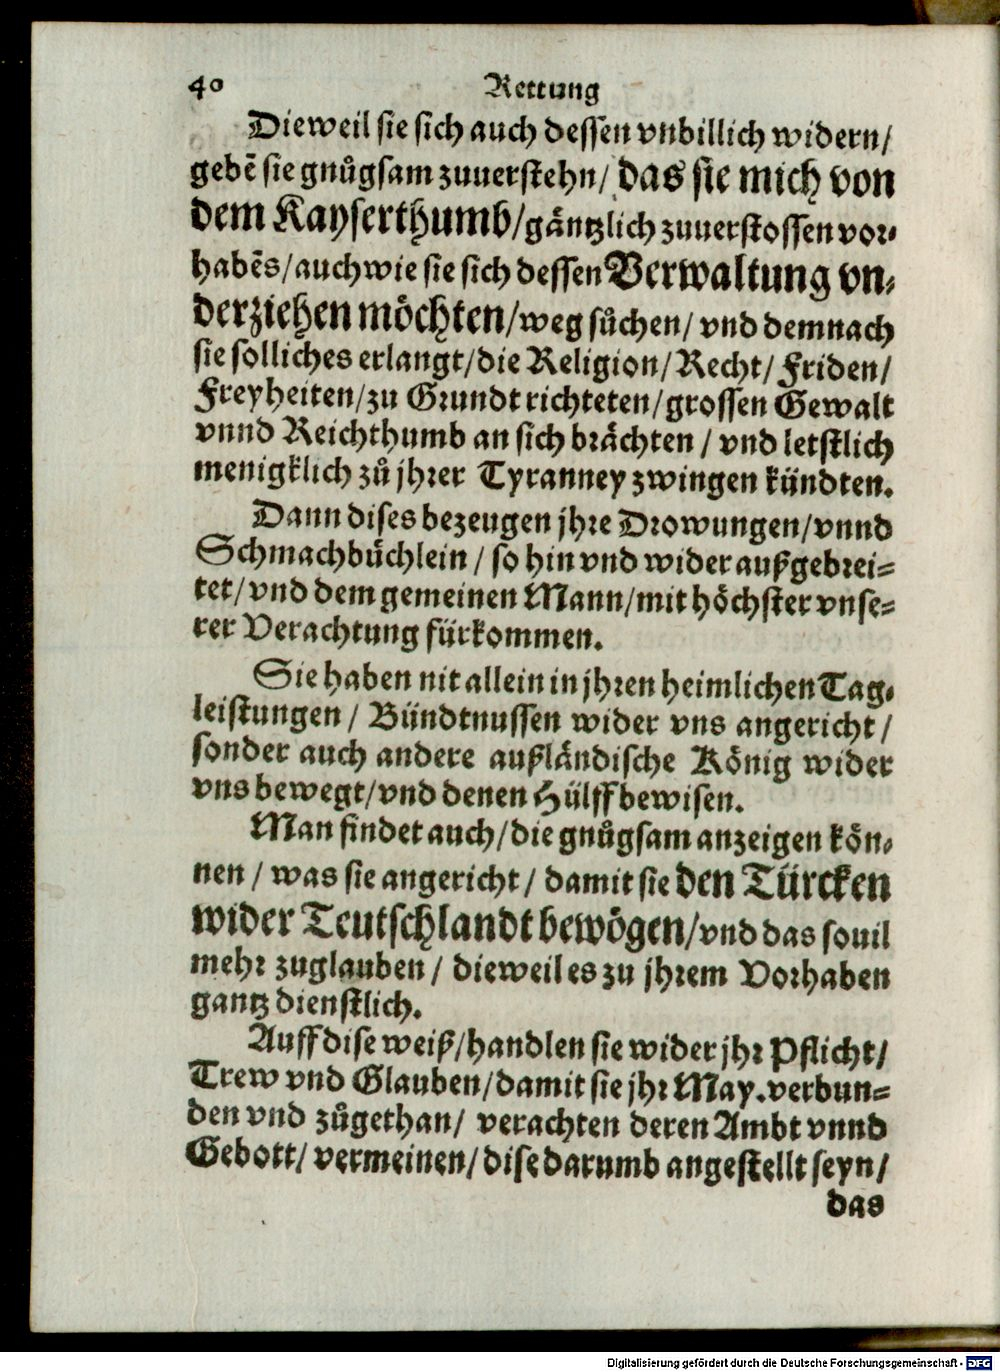 40 Rettung
Dieweil sie sich auch dessen vnbillich widern/
gebẽ sie gnůgsam zuuerstehn/ das sie mich von
dem Kayserthumb/gäntzlich zuuerstossen vor-
habẽs/auch wie sie sich dessen Verwaltung vn-
derziehen möchten/weg sůchen/ vnd demnach
sie solliches erlangt/die Religion/Recht/ Friden/
Freyheiten/zu Grundt richteten/grossen Gewalt
vnnd Reichthumb an sich brächten / vnd letstlich
menigklich zů jhrer Tyranney zwingen kündten.
Dann dises bezeugen jhre Drowungen/vnnd
Schmachbüchlein / so hin vnd wider außgebrei-
tet/ vnd dem gemeinen Mann/mit höchster vnse-
rer Verachtung fürkommen.
Sie haben nit allein in jhren heimlichen Tag-
leistungen / Bündtnussen wider vns angericht /
sonder auch andere außländische König wider
vns bewegt/vnd denen Hülff bewisen.
Man findet auch/die gnůgsam anzeigen kön-
nen / was sie angericht / damit sie den Türcken
wider Teutschlandt bewögen/vnd das souil
mehr zuglauben / dieweil es zu jhrem Vorhaben
gantz dienstlich.
Auff dise weiß/handlen sie wider jhr Pflicht/
Trew vnd Glauben/damit sie jhr May.verbun-
den vnd zůgethan/ verachten deren Ambt vnnd
Gebott/ vermeinen/ dise darumb angestellt seyn/
das
Digitalisierung gefördert durch die Deutsche Forschungsgemeinschaft - DFG